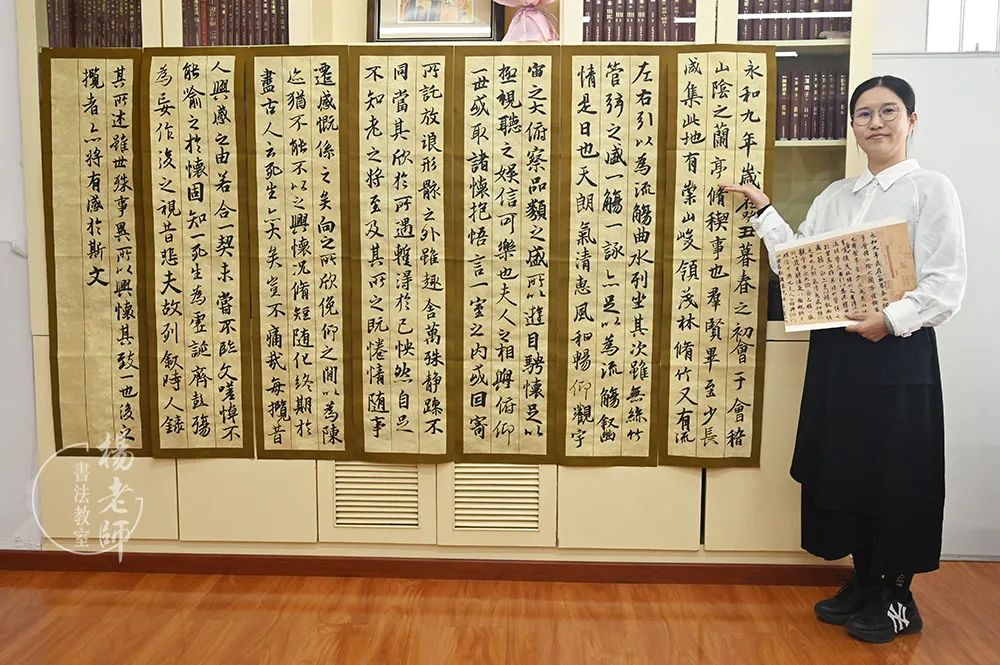 永和九年歲在癸丑暮春之初會于會稽
山陰之蘭亭脩稧事也羣賢畢至少長
咸集此地有崇山峻領茂林脩竹又有流
左右引以為流觴曲水列坐其次雖無絲竹
管弦之盛一觴一詠亦足以為流觴叙幽
情是日也天朗氣清惠風和暢仰觀宇
宙之大俯察品類之盛所以遊目騁懷足以
極視聽之娛信可樂也夫人之相與俯仰
一世或取諸懷抱悟言一室之內或因寄
所託放浪形骸之外雖趣舍萬殊靜躁不
同當其欣於所遇暫得於己怏然自足
不知老之將至及其所之既惓情隨事
遷感慨係之矣向之所欣俛仰之閒以為陳
迹猶不能不以之興懷況脩短隨化終期於
盡古人云死生亦大矣豈不痛哉每攬昔
人興感之由若合一契未嘗不臨文嗟悼不
能喻之於懷固知一死生為虛誕齊彭殤
為妄作後之視昔悲夫故列叙時人錄
其所述雖世殊事異所以興懷其致一也後之
攬者亦將有感於斯文
楊老師
書法教室